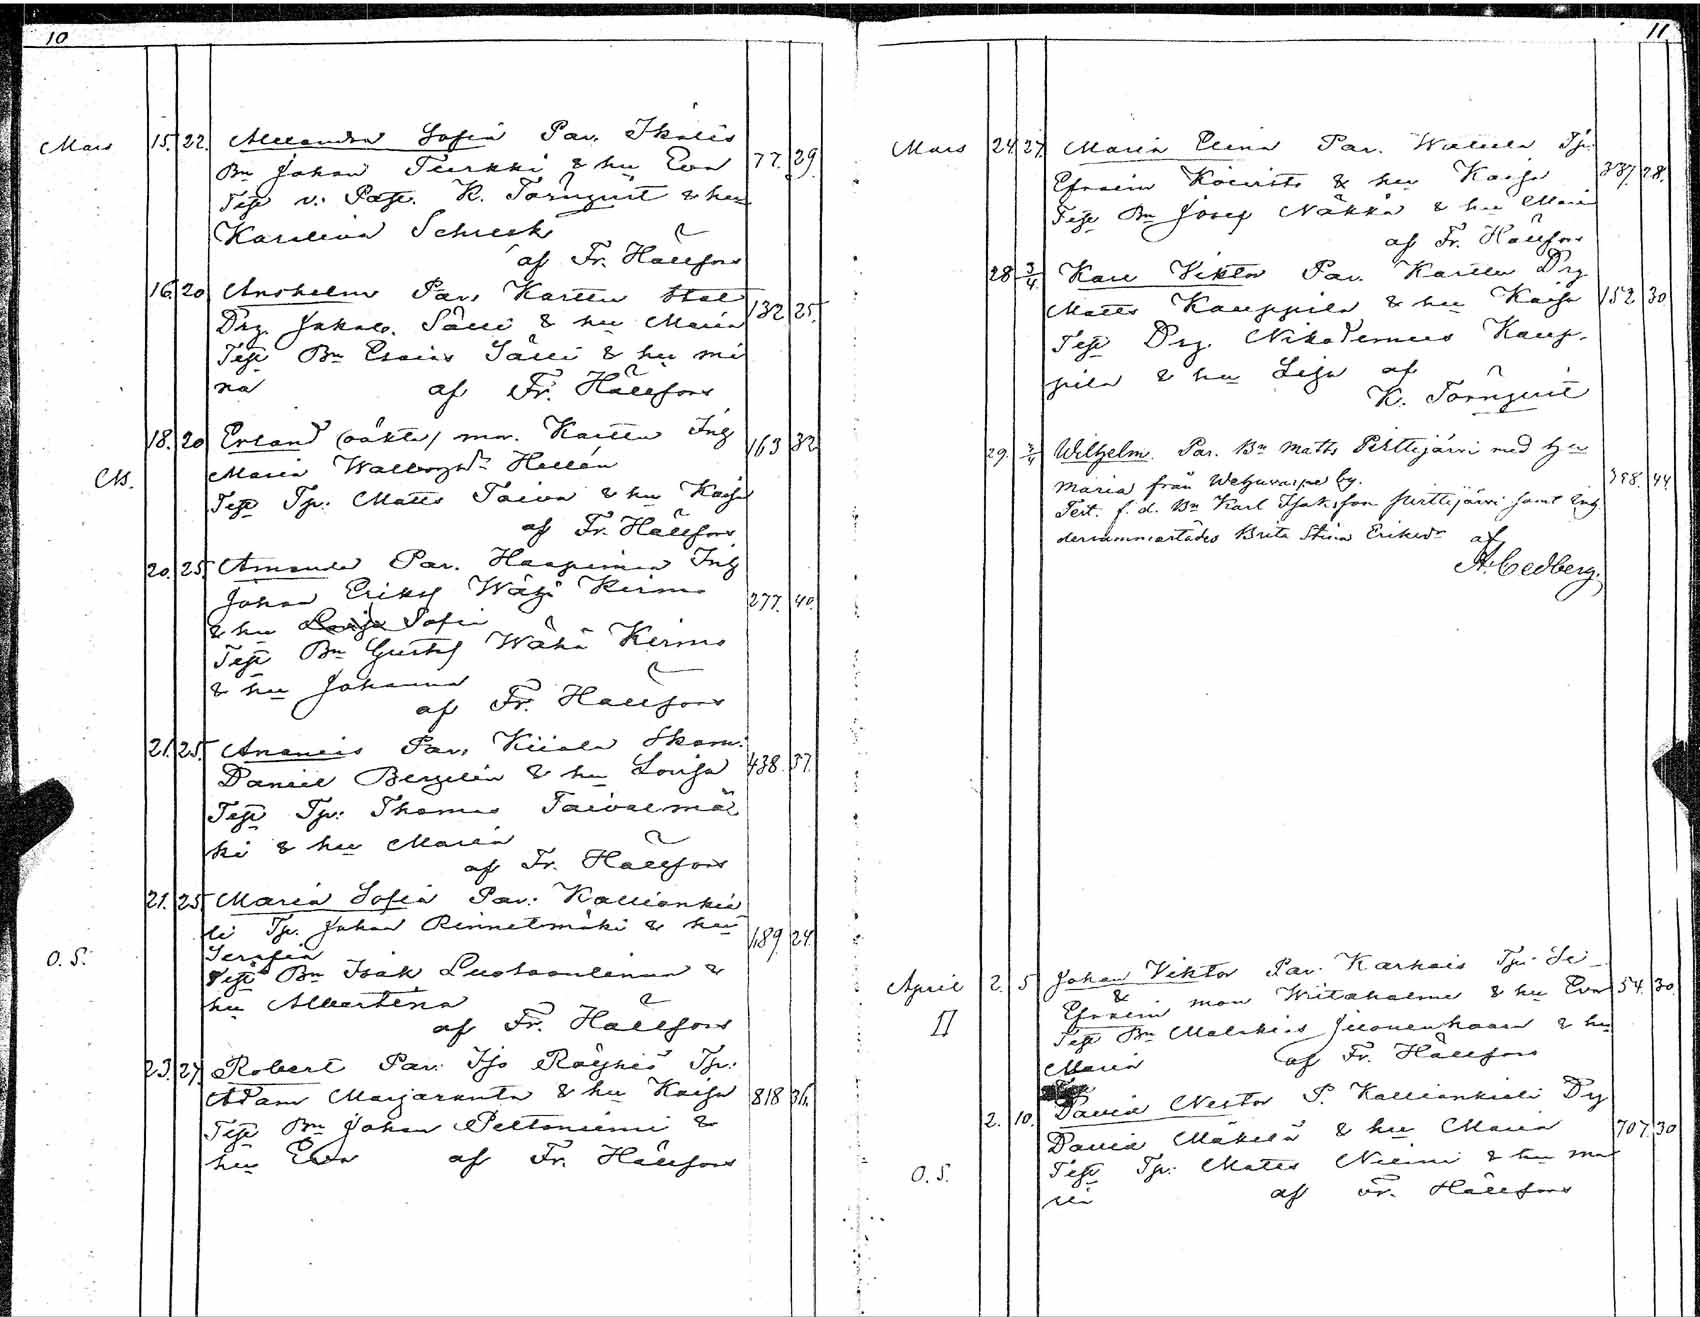 10
Mars 15. 22. Alexandra Sofia Par. Ikalis
Bn Johan Turkki & hu Eva 77. 29.
Test v. Past. K. Törnqvist & hu
Karolina Schreck
af Fr. Hällfors
16. 20 Anshelm Par. Karttu
Drg. Jakob Sälli & hu Maria 132 25.
Test Bn Esaias Sälli & hu Mi
na af Fr. Hällfors
18. 20 Erland (oäkta) mor. Karttu Inh 163 32
Maria Walborg Hellén
Test Tp. Matts Taiva & hu Kajsa
af Fr. Hällfors
20. 25. Amanda Par. Haapimaa Inh
Johan Erikss Wähä Kirmo 277. 40.
& hu Sofia
Test Bn Gustaf Wähä Kirmo
& hu Johanna
af Fr. Hällfors
21. 25. Ananias Par. Kiiala Skom.
Daniel Berglin & hu Lovisa 438. 37.
Test Tp. Thomas Taivalmä
ki & hu Maria
af Fr. Hällfors
21. 25 Maria Sofia Par. Kallionkie
li Tp. Johan Rinnetmäki & hu 189. 24.
Serafia
O. S.
Test Bn Isak Luoto &
hu Albertina
af Fr. Hällfors
23. 27. Robert Par. Iso Röyhiö Tp.
Adam Marjaranta & hu Kajsa 818 36.
Test Bn Johan Peltoniemi &
hu Eva af Fr. Hällfors
11
Mars 24. 27. Maria Elina Par. Tp.
Efraim Koivisto & hu Kajsa 337. 28.
Test Bn Josef Näkkä & hu Maria
af Fr. Hällfors
28 3/4 Karl Viktor Par. Karttu Drg
Matts Kauppila & hu Kajsa 152 30
Test Drg. Nikodemus Kaup-
pila & hu Lisa af
K. Törnqvist
29. 3/4 Wilhelm. Par. Bn Matts Perttujärvi med hu
Maria från by. 398. 44.
Test. f. d. Bn Karl Isaksson Perttujärvi samt Inh
dersammastädes Brita Stina Eriksdr af
A. Cedberg.
April 2. 5 Johan Viktor Par. Karhais Tp. Si-
& Efraim mon Wiitaholma & hu Eva 54. 30.
II
Test Bn Malakias Juonenhaara & hu
Maria af Fr. Hällfors
2. 10. David Nestor P. Kallionkieli Drg
David Mäkelä & hu Maria 707. 30
O. S.
Test Tp. Matts Niemi & hu Ma
ria af Fr. Hällfors